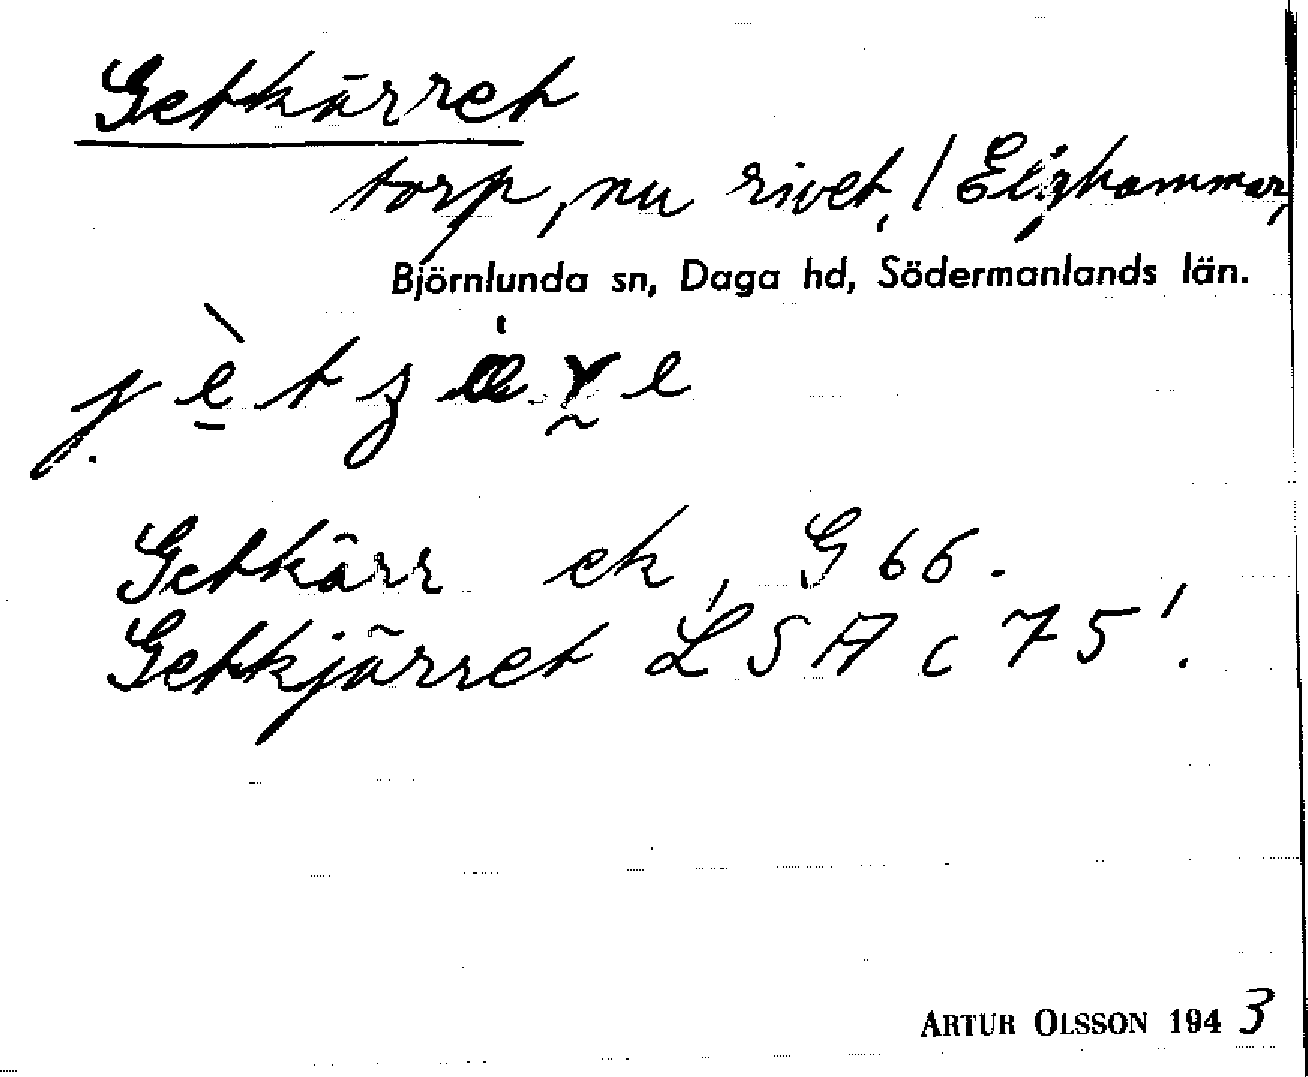 Getkärret
torp, nu rivet, / Elghammar,
Björnlunda sn, Daga hd, Södermanlands län.
Getkärr ek, G 66.
Getkjärret LSA c 75'.
ARTUR OLSSON 1943